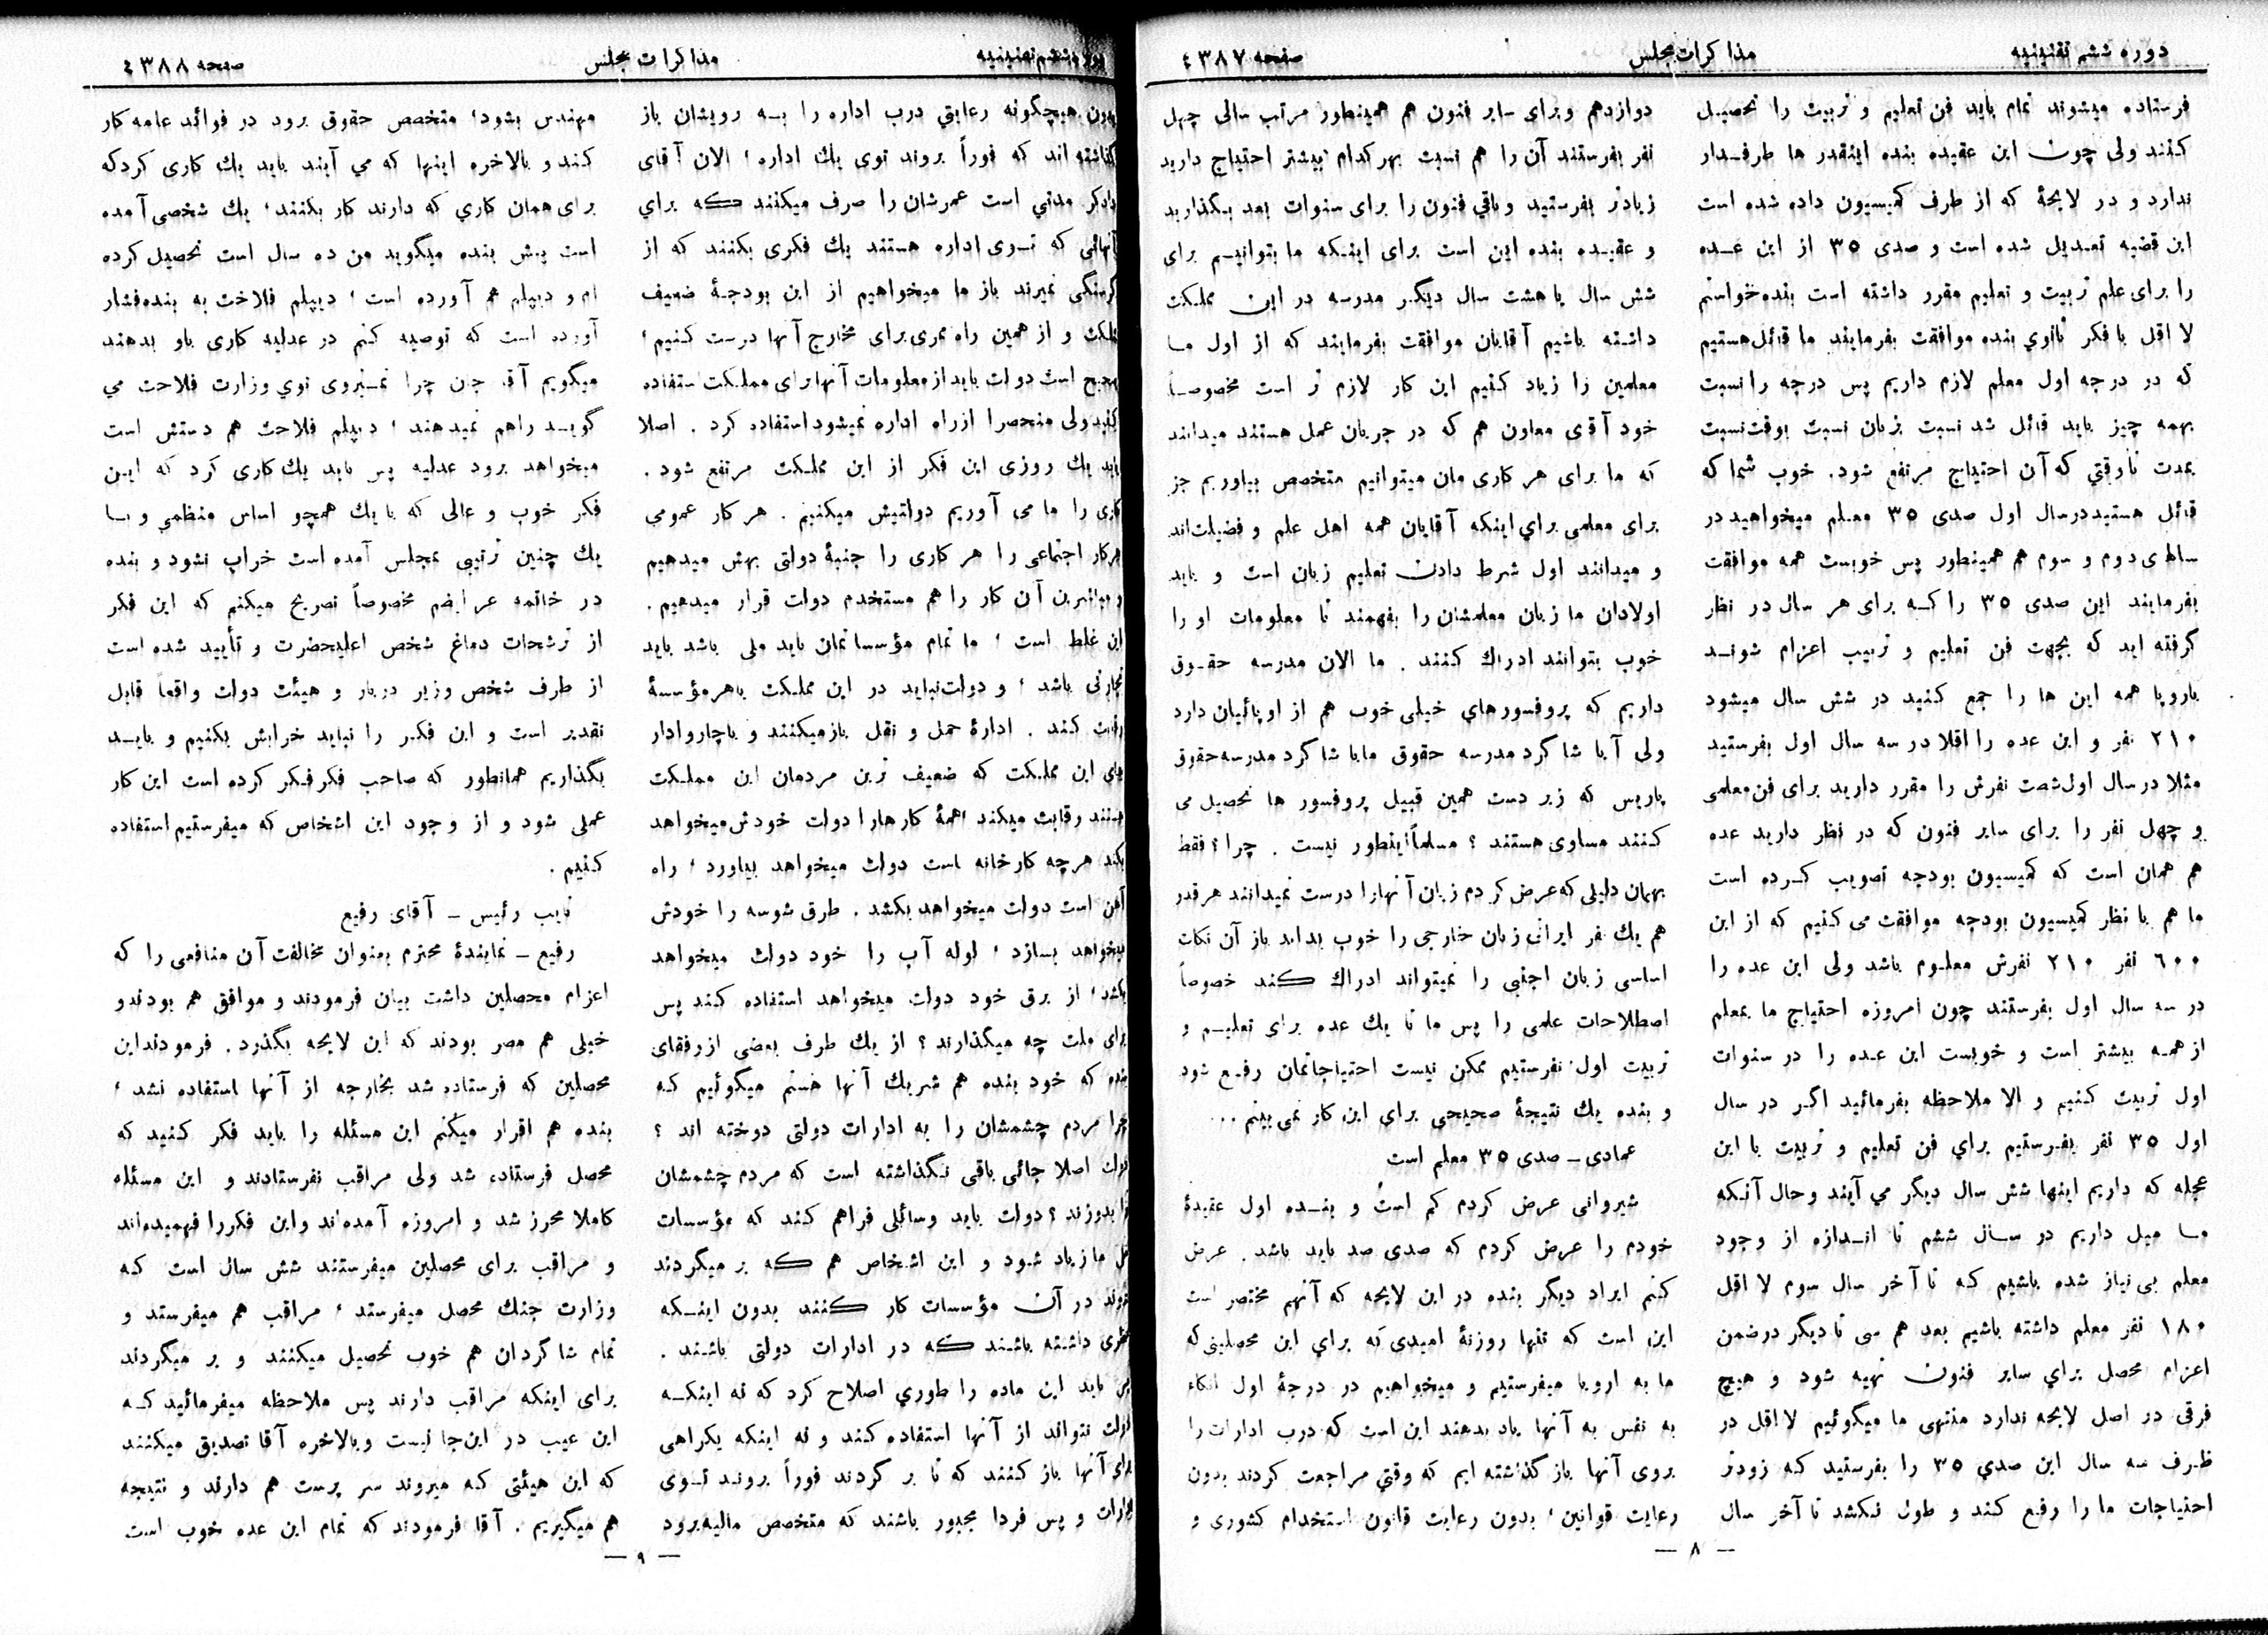 دوره ششم تقنینیه
مذاکرات مجلس
صفحه ٤٣٨٧
فرستاده میشوند تمام باید فن تعلیم و تربیت را تحصیل
کنند ولی چون این عقیده بنده اینقدر ها طرفدار
ندارد و در لایحهٔ که از طرف کمیسیون داده شده است
این قضیه تعدیل شده است و صدی ۳۵ از این عده
را برای علم تربیت و تعلیم مقرر داشته است بنده خواستم
لا اقل با فکر ثانوي بنده موافقت بفرمایند ما قائل هستیم
که در درجه اول معلم لازم داریم پس درجه را نسبت
بهمه چیز باید قائل شد نسبت بزبان نسبت بوقت نسبت
بمدت تا وقتي که آن احتیاج مرتفع شود. خوب شما که
قائل هستید در سال اول صدی ۳۵ معلم میخواهید در
سالهای دوم و سوم هم همینطور پس خوبست همه موافقت
بفرمایند این صدی ۳۵ را که برای هر سال در نظر
گرفته اید که بجهت فن تعلیم و تربیت اعزام شوند
باروپا همه این ها را جمع کنید در شش سال میشود
۲۱۰ نفر و این عده را اقلا در سه سال اول بفرستید
مثلا در سال اول شصت نفرش را مقرر دارید برای فن معلمی
و چهل نفر را برای سایر فنون که در نظر دارید عده
هم همان است که کمیسیون بودجه تصویب کرده است
ما هم با نظر کمیسیون بودجه موافقت می کنیم که از این
۶۰۰ نفر ۲۱۰ نفرش معلوم باشد ولی این عده را
در سه سال اول بفرستند چون امروزه احتیاج ما بمعلم
از همه بیشتر است و خوبست این عده را در سنوات
اول تربیت کنیم و الا ملاحظه بفرمائید اگر در سال
اول ۳۵ نفر بفرستیم براي فن تعلیم و تربیت با این
عجله که داریم اینها شش سال دیگر مي آیند و حال آنکه
ما میل داریم در سال ششم تا اندازه از وجود
معلم بی نیاز شده باشیم که تا آخر سال سوم لا اقل
۱۸۰ نفر معلم داشته باشیم بعد هم سی تا دیگر در ضمن
اعزام محصل براي سایر فنون تهیه شود و هیچ
فرقی در اصل لایحه ندارد منتهی ما میگوئیم لا اقل در
ظرف سه سال این صدي ۳۵ را بفرستید که زودتر
احتیاجات ما را رفع کند و طول نکشد تا آخر سال
دوازدهم و برای سایر فنون هم همینطور مرتب سالی چهل
نفر بفرستند آن را هم نسبت بهر کدام بیشتر احتیاج دارید
زیادتر بفرستید و باقي فنون را برای سنوات بعد بگذارید
و عقیده بنده این است برای اینکه ما بتوانیم برای
شش سال یا هشت سال دیگر مدرسه در این مملکت
داشته باشیم آقایان موافقت بفرمایند که از اول ما
معلمین را زیاد کنیم این کار لازم تر است مخصوصاً
خود آقای معاون هم که در جریان عمل هستند میدانند
که ما برای هر کاری مان میتوانیم متخصص بیاوریم جز
برای معلمی براي اینکه آقایان همه اهل علم و فضیلت‌اند
و میدانند اول شرط دادن تعلیم زبان است و باید
اولادان ما زبان معلمشان را بفهمند تا معلومات او را
خوب بتوانند ادراك کنند . ما الان مدرسه حقوق
داریم که پروفسورهاي خیلی خوب هم از اوپائیان دارد
ولی آیا شاگرد مدرسه حقوق ما با شاگرد مدرسه حقوق
پاریس که زیر دست همین قبیل پروفسور ها تحصیل می
کنند مساوی هستند ؟ مسلماً اینطور نیست . چرا ؟ فقط
بهمان دلیلی که عرض کردم زبان آنها را درست نمیدانند هر قدر
هم یك نفر ایرانی زبان خارجی را خوب بداند باز آن نکات
اساسی زبان اجنبی را نمیتواند ادراك کند خصوصاً
اصطلاحات علمی را پس ما تا یك عده برای تعلیم و
تربیت اول نفرستیم ممکن نیست احتیاجاتمان رفع شود
و بنده یك نتیجهٔ صحیحی براي این کار نمی بینم ...
عمادی ــ صدی ۳۵ معلم است
شیروانی عرض کردم کم است و بنده اول عقیدهٔ
خودم را عرض کردم که صدی صد باید باشد . عرض
کنم ایراد دیگر بنده در این لایحه که آنهم مختصر است
این است که تنها روزنهٔ امیدی که براي این محصلینی که
ما به اروپا میفرستیم و میخواهیم در درجهٔ اول اتکاء
به نفس به آنها یاد بدهند این است که درب ادارات را
بروی آنها باز گذاشته ایم که وقتي مراجعت کردند بدون
رعایت قوانین ؛ بدون رعایت قانون استخدام کشوری و
— ۸ —
دوره ششم تقنینیه
مذاکرات مجلس
صفحه ٤٣٨٨
بدون هیچگونه رعایتي درب اداره را به رویشان باز
گذاشته اند که فوراً بروند توی یك اداره ؛ الان آقای
دادگر مدتي است عمرشان را صرف میکنند که براي
آنهائی که توی اداره هستند یك فکری بکنند که از
گرسنگی نمیرند باز ما میخواهیم از این بودجهٔ ضعیف
مملکت و از همین راه ممری برای مخارج آنها درست کنیم ؛
صحیح است دولت باید از معلومات آنها برای مملکت استفاده
کند ولی منحصرا از راه اداره نمیشود استفاده کرد . اصلا
باید یك روزی این فکر از این مملکت مرتفع شود .
کاری را ما می آوریم دولتیش میکنیم . هر کار عمومی
هر کار اجتماعی را هر کاری را جنبهٔ دولتی بهش میدهیم
و مباشرین آن کار را هم مستخدم دولت قرار میدهیم .
این غلط است ؛ ما تمام مؤسساتمان باید ملی باشد باید
تجارتی باشد ؛ و دولت نباید در این مملکت با هر مؤسسهٔ
رقابت کند . ادارهٔ حمل و نقل باز میکنند و با چاروادار
های این مملکت که ضعیف ترین مردمان این مملکت
هستند رقابت میکند همهٔ کارها را دولت خودش میخواهد
بکند هر چه کارخانه است دولت میخواهد بیاورد ؛ راه
آهن است دولت میخواهد بکشد . طرق شوسه را خودش
میخواهد بسازد ؛ لوله آب را خود دولت میخواهد
بکشد ؛ از برق خود دولت میخواهد استفاده کند پس
برای ملت چه میگذارند ؟ از یك طرف بعضی از رفقای
بنده که خود بنده هم شریك آنها هستم میگوئیم که
چرا مردم چشمشان را به ادارات دولتی دوخته اند ؟
دولت اصلا جائی باقی نگذاشته است که مردم چشمشان
را بدوزند ؟ دولت باید وسائلی فراهم کند که مؤسسات
ملی ما زیاد شود و این اشخاص هم که بر میگردند
بروند در آن مؤسسات کار کنند بدون اینکه
نظری داشته باشند که در ادارات دولتی باشند .
پس باید این ماده را طوري اصلاح کرد که نه اینکه
دولت نتواند از آنها استفاده کند و نه اینکه یکراهی
برای آنها باز کنند که تا بر گردند فوراً بروند توی
ادارات و پس فردا مجبور باشند که متخصص مالیه برود
مهندس بشود ؛ متخصص حقوق برود در فوائد عامه کار
کند و بالاخره اینها که می آیند باید یك کاری کرد که
برای همان کاري که دارند کار بکنند ؛ یك شخصی آمده
است پیش بنده میگوید من ده سال است تحصیل کرده
ام و دیپلم هم آورده است ؛ دیپلم فلاحت به بنده فشار
آورده است که توصیه کنم در عدلیه کاری باو بدهند
میگویم آقا جان چرا نمیروی توي وزارت فلاحت می
گوید راهم نمیدهند ؛ دیپلم فلاحت هم دستش است
میخواهد برود عدلیه پس باید یك کاری کرد که این
فکر خوب و عالی که با یك همچو اساس منظمي و با
یك چنین ترتیبی بمجلس آمده است خراب نشود و بنده
در خاتمه عرایضم مخصوصاً تصریح میکنم که این فکر
از ترشحات دماغ شخص اعلیحضرت و تأیید شده است
از طرف شخص وزیر دربار و هیئت دولت واقعاً قابل
تقدیر است و این فکر را نباید خرابش بکنیم و باید
بگذاریم همانطور که صاحب فکر فکر کرده است این کار
عملی شود و از وجود این اشخاص که میفرستیم استفاده
کنیم .
نایب رئیس ــ آقای رفیع
رفیع ــ نمایندهٔ محترم بعنوان مخالفت آن منافعی را که
اعزام محصلین داشت بیان فرمودند و موافق هم بودند و
خیلی هم مصر بودند که این لایحه بگذرد . فرمودند این
محصلین که فرستاده شد بخارجه از آنها استفاده نشد ؛
بنده هم اقرار میکنم این مسئله را باید فکر کنید که
محصل فرستاده شد ولی مراقب نفرستادند و این مسئله
کاملا محرز شد و امروزه آمده‌اند و این فکر را فهمیده‌اند
و مراقب برای محصلین میفرستند شش سال است که
وزارت جنك محصل میفرستد ؛ مراقب هم میفرستد و
تمام شاگردان هم خوب تحصیل میکنند و بر میگردند
برای اینکه مراقب دارند پس ملاحظه میفرمائید که
این عیب در این‌جا نیست و بالاخره آقا تصدیق میکنند
که این هیئتی که میروند سر پرست هم دارند و نتیجه
هم میگیریم . آقا فرمودند که تمام این عده خوب است
— ۹ —